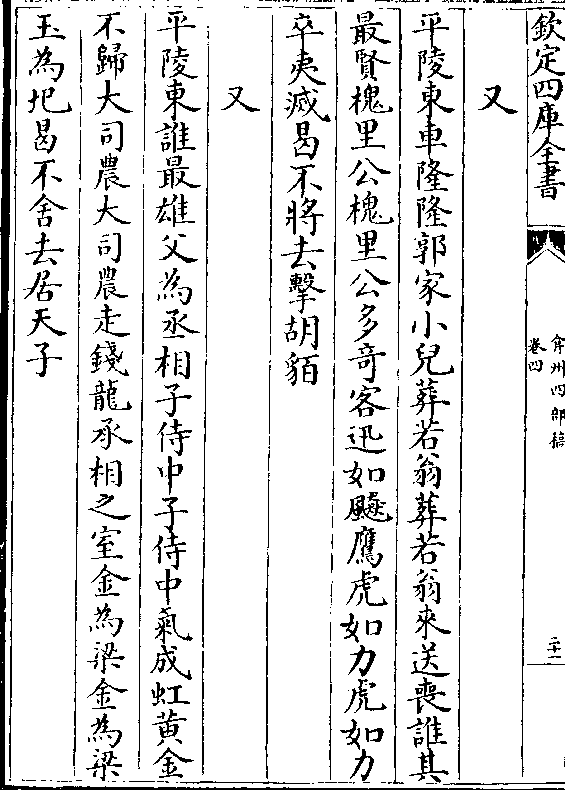 欽定四庫全書
弇州四部稿
卷四
二十一
又
平陵東車隆隆郭家小兒葬若翁葬若翁來送喪誰其
最賢槐里公槐里公多奇客迅如飈鷹虎如力虎如力
卒夷滅曷不將去擊胡貊
又
平陵東誰最雄父為丞相子侍中子侍中氣成虹黃金
不歸大司農大司農走錢龍丞相之室金為梁金為梁
玉為圯曷不舍去居天子